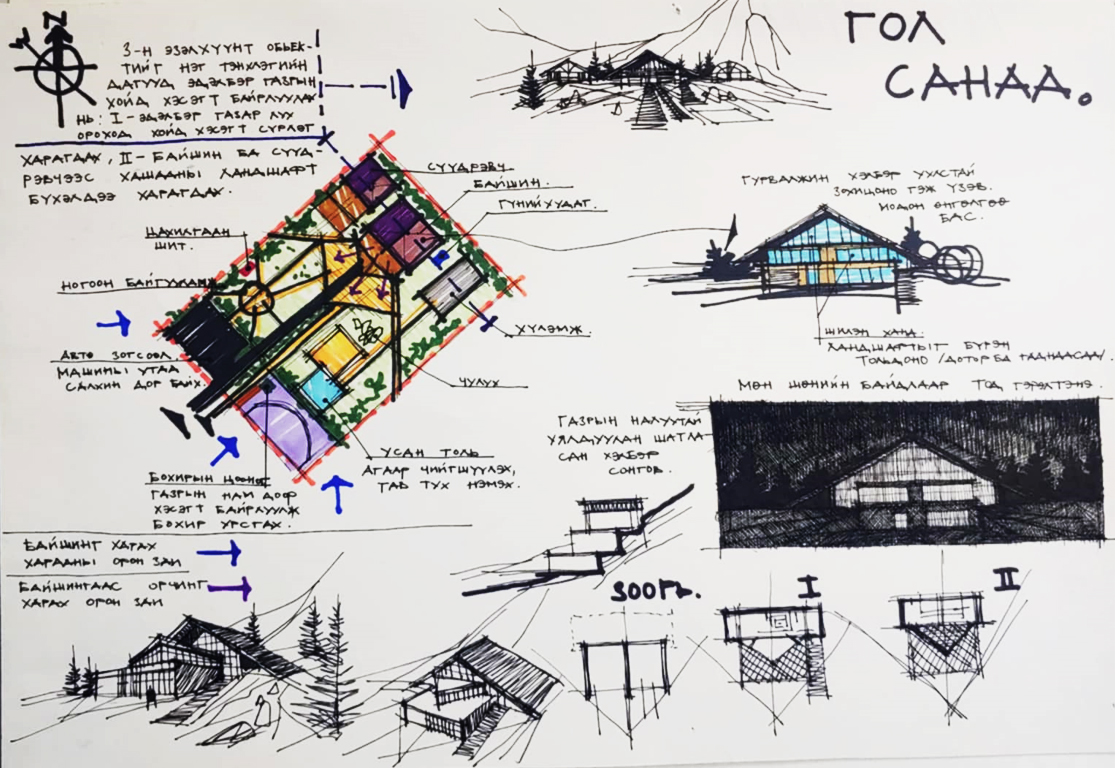 N
ГОЛ
САНАА.
3-Н ЭЗЭЛХҮҮНТ ОБЬЕК-
ТИЙГ НЭГ ТЭНХЛЭГИЙН
ДАГУУД ЭДЭЛБЭР ГАЗРЫН
ХОЙД ХЭСЭГТ БАЙРЛУУЛАХ
НЬ: I-ЭДЭЛБЭР ГАЗАР ЛУУ
ОРОХОД ХОЙД ХЭСЭГТ СҮРЛЭГ
ХАРАГДАХ, II- БАЙШИН БА СҮҮД-
РЭВЧЭЭС ХАШААНЫ ЛАНДШАФТ
БҮХЭЛДЭЭ ХАРАГДАХ.
СҮҮДРЭВЧ
БАЙШИН.
ГҮНИЙ ХУДАГ.
ЦАХИЛГААН
ШИТ.
НОГООН БАЙГУУЛАМЖ
АВТО ЗОГСООЛ.
МАШИНЫ УТАА
САЛХИН ДОР БАЙХ.
ХҮЛЭМЖ.
ЧУЛУУ
УСАН ТОЛЬ
АГААР ЧИЙГШҮҮЛЭХ,
ТАВ ТУХ НЭМЭХ.
БОХИРЫН ЦООНОГ
ГАЗРЫН НАМ ДОР
ХЭСЭГТ БАЙРЛУУЛЖ
БОХИР УРСГАХ.
БАЙШИНГ ХАРАХ
ХАРААНЫ ОРОН ЗАЙ
БАЙШИНГААС ОРЧИНГ
ХАРАХ ОРОН ЗАЙ
ГУРВАЛЖИН ХЭЛБЭР УУЛСТАЙ
ЗОХИЦОНО ГЭЖ ҮЗЭВ.
МОДОН ӨНГӨЛГӨӨ
БАС.
ШИЛЭН ХАНА.
ЛАНДШАФТЫГ БҮРЭН
ТОЛЬДОНО /ДОТОР БА ГАДНААСАА/.
МӨН ШӨНИЙН БАЙДЛААР ТОД ГЭРЭЛТЭНЭ.
ГАЗРЫН НАЛУУТАЙ
УЯЛДУУЛАН ШАТЛА-
САН ХЭЛБЭР
СОНГОВ.
ЗООГЬ.
I
II